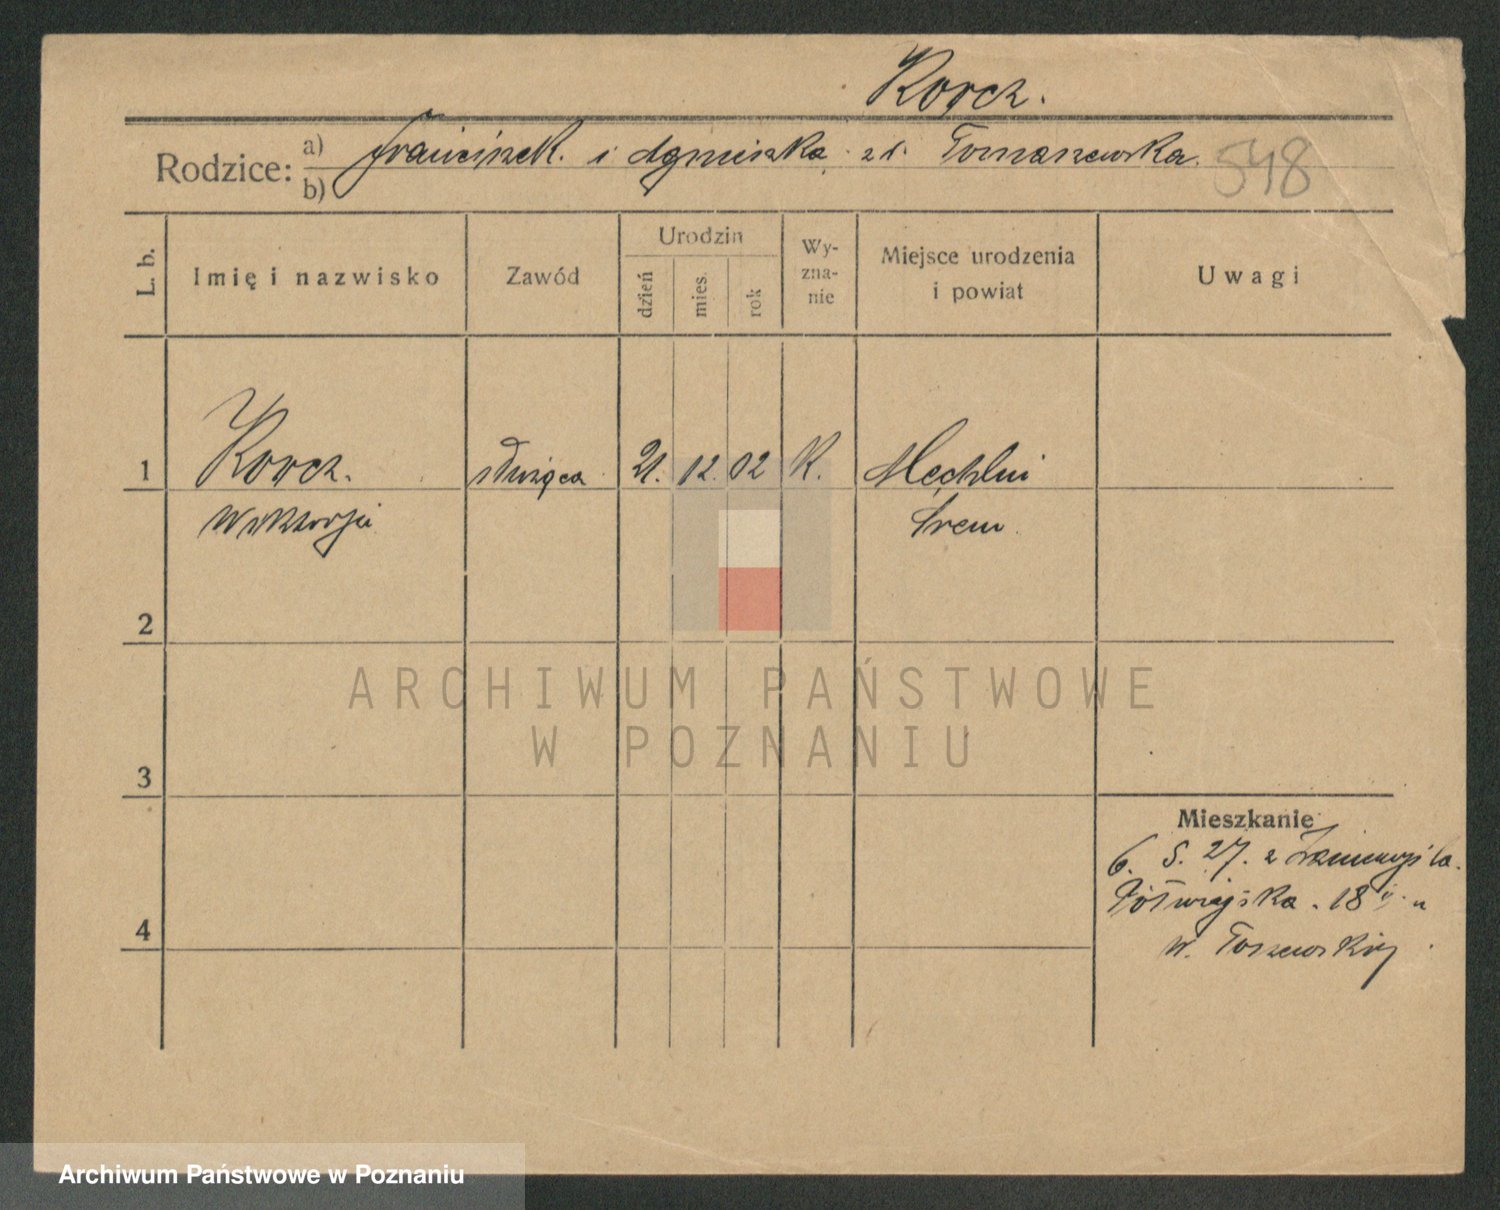 Korcz.
Rodzice: a) b) Franciszek. i Agnieszka zd. Tomaszewska. 548
L. b. Imię i nazwisko Zawód Urodzin dzień mies. rok Wy-zna-nie Miejsce urodzenia i powiat Uwagi
1 Korcz. służąca 21. 12. 02 K. Mechlin
Wiktorja Śrem
2
ARCHIWUM PAŃSTWOWE
W POZNANIU
3
Mieszkanie
6. 5. 27. z Zaniemyśla.
Półwiejska. 18
4
w.
Archiwum Państwowe w Poznaniu